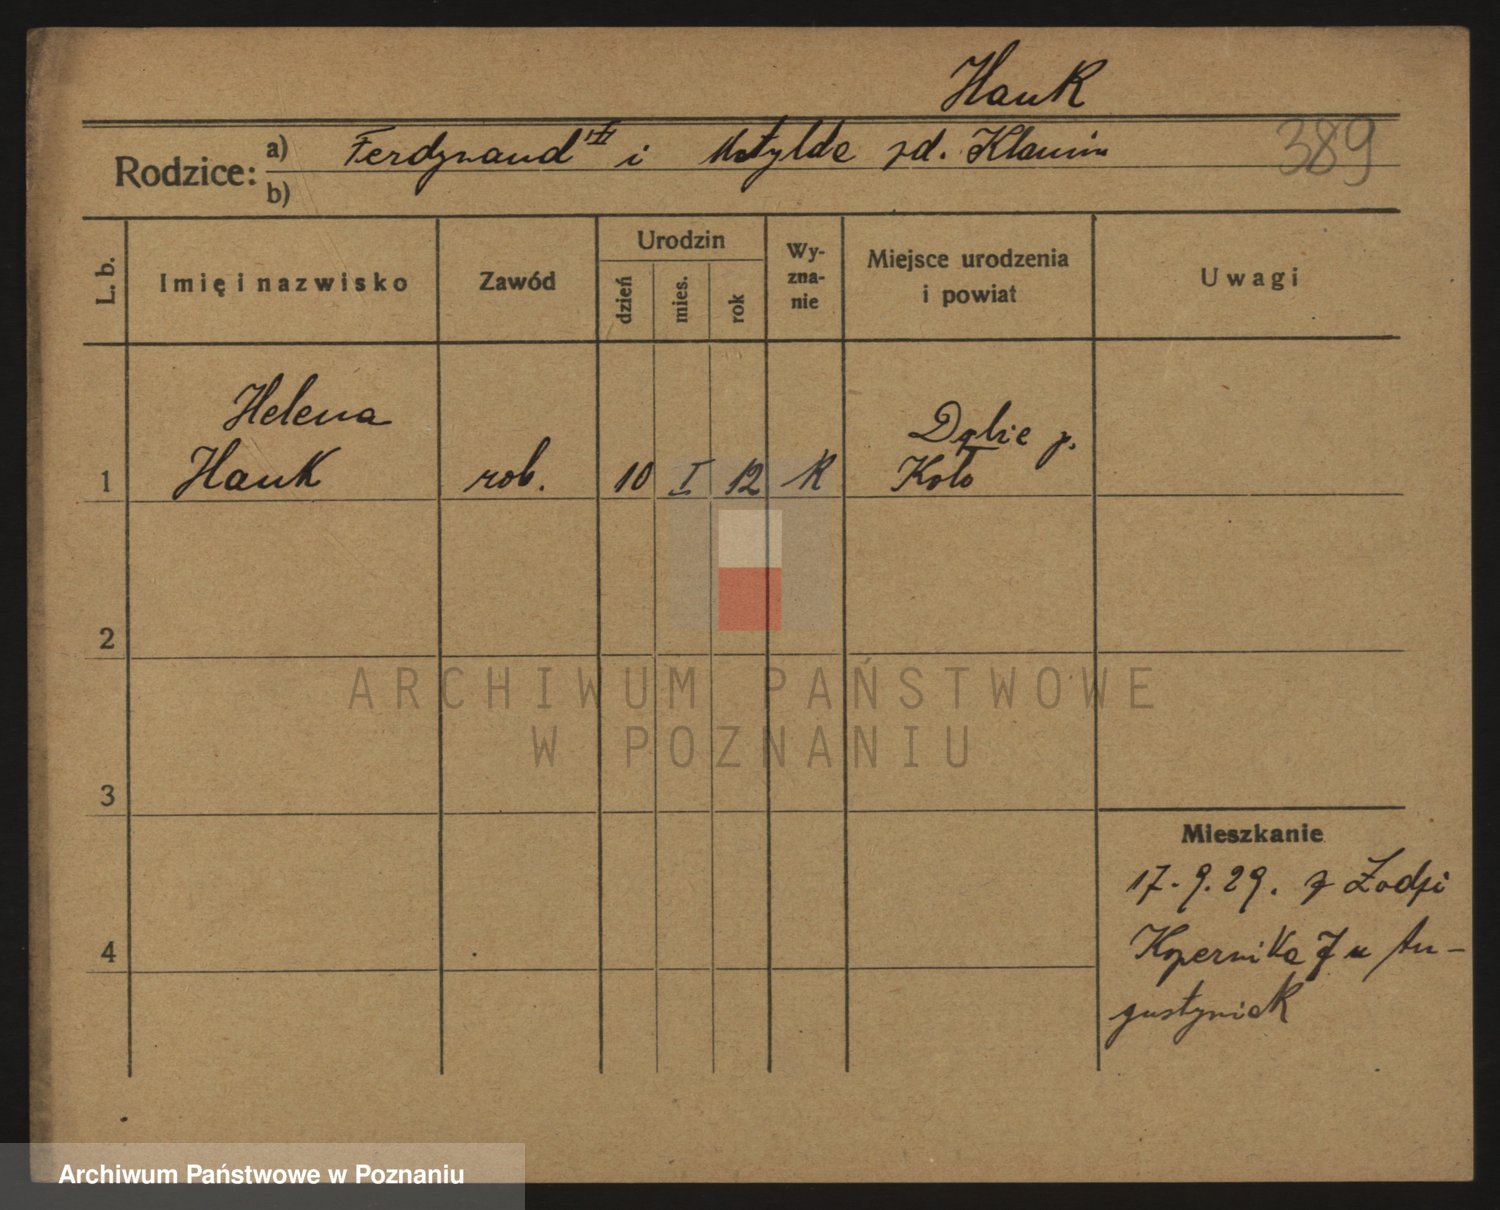 Hauk
389
Rodzice:
a) Ferdynand i Matylda zd. Klamin
b)
L. b.
Imię i nazwisko
Zawód
Urodzin
dzień
mies.
rok
Wy-
zna-
nie
Miejsce urodzenia
i powiat
Uwagi
Helena
Dąbie p.
1 Hauk rob. 10 I 12 K Koło
2
3
4
Mieszkanie
17.9.29. z Łodzi
Kopernika 7 u Au-
gustyniak
ARCHIWUM PAŃSTWOWE
W POZNANIU
Archiwum Państwowe w Poznaniu